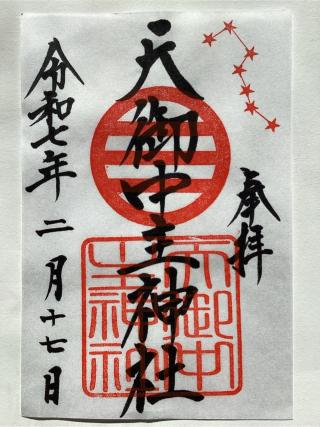 奉拝
天御中主神社
令和七年二月十七日
天御中
主神社